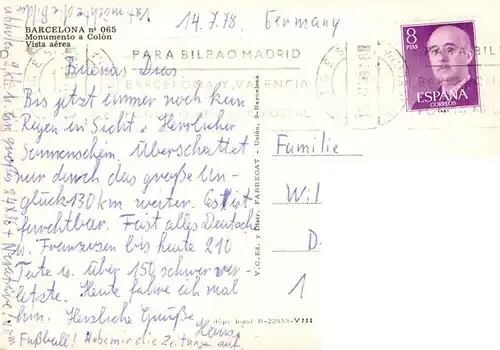 14.7.78. Germany
BARCELONA nº 065
Monumento a Colón
Vista aérea
PARA BILBAO MADRID
BARCELONA Y VALENCIA
POSTAL
8
PTAS
ESPAÑA
CORREOS
Buenas Dias.
Bis jetzt immer noch kein
Regen in Sicht. Herrlicher
Sonnenschein, überschattet
nur durch das große Un-
glück 130 km weiter. Es ist
furchtbar. Fast alles Deutsche
u. Franzosen bis heute 210
Tote u. über 150 schwer ver-
letzte. Heute fahre ich mal
hin. Herzliche Grüße
Hans
Fußball! Hebe mir die Zeitungen auf.
Familie
Wil
D.
1
V.C. Ed. y Distr. FABREGAT - Unión, 9-Barcelona
dóp. legal B-22953-VIII